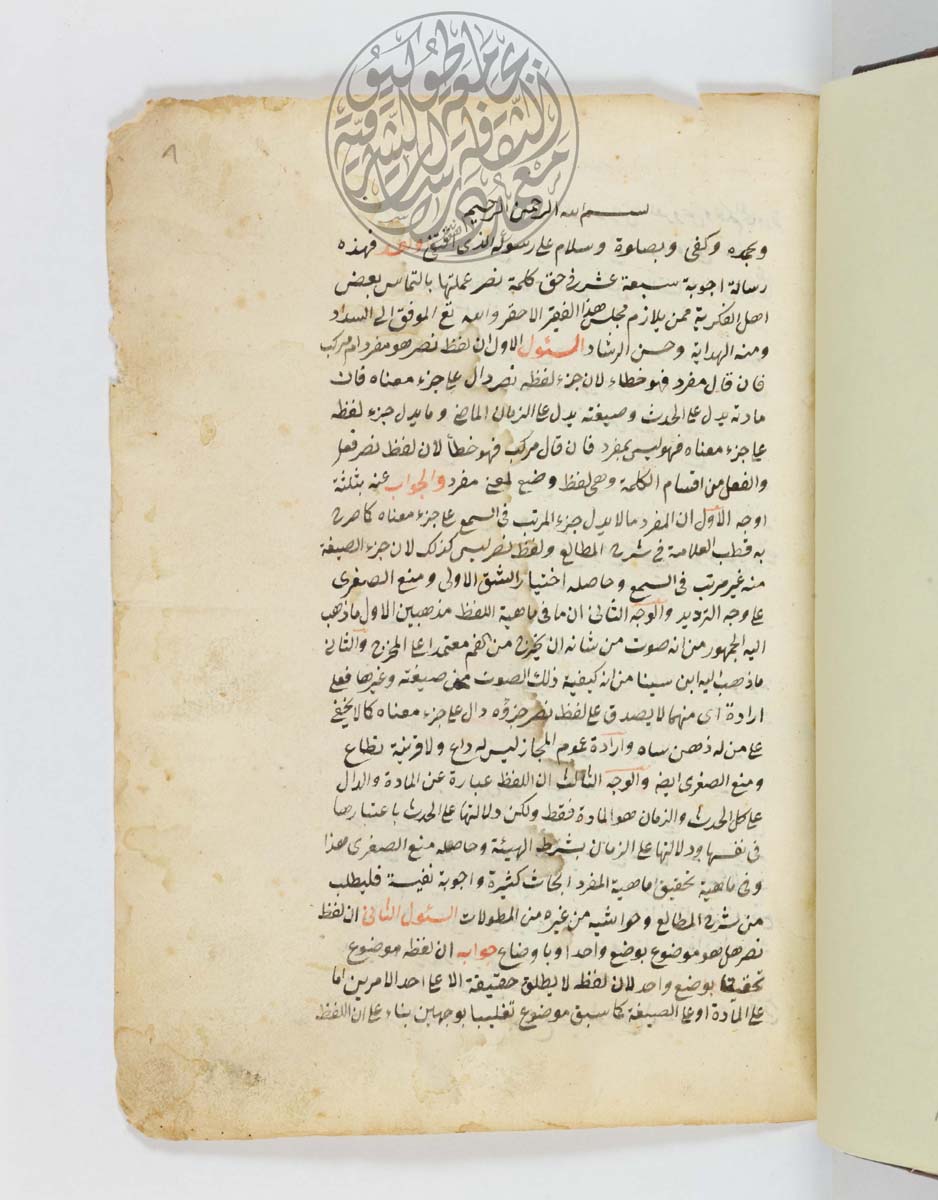 بسم الله الرحمن الرحيم
وبحمده وكفى وبصلوة وسلام على رسوله الذى اقتفى وبعد فهذه
رسالة اجوبة سبعة عشر فى حق كلمة نصر عملتها بالتماس بعض
اهل الفكرية ممن يلازم مجلس هذا الفقير الاحقر والله تع الموفق الى السداد
ومنه الهداية وحسن الرشاد السئول الاول ان لفظ نصر هو مفرد ام مركب
فان قال مفرد فهو خطاء لان جزء لفظه نصر دال على جزء معناه فان
مادته يدل على الحدث وصيغته يدل على الزمان الماضى وما يدل جزء لفظه
على جزء معناه فهو ليس بمفرد فان قال مركب فهو خطأ لان لفظ نصر فعل
والفعل من اقسام الكلمة وهى لفظ وضع لمعنى مفرد والجواب عنه بثلثة
اوجه الاول ان المفرد ما لا يدل جزء المرتب فى السمع على جزء معناه كما صرح
به قطب العلامة فى شرح المطالع ولفظ نصر ليس كذلك لان جزء الصيغة
منه غير مرتب فى السمع وحاصله اختيار الشق الاولى ومنع الصغرى
على وجه الترديد والوجه الثانى ان ما فى ماهية اللفظ مذهبين الاول ما ذهب
اليه الجمهور من انه صوت من شانه ان يخرج من الفم معتمدا على المخرج والثانى
ما ذهب اليه ابن سينا من انه كيفية ذلك الصوت صيغته وغيرها فعلى
ارادة اى منهما لا يصدق على لفظ نصر جزؤه دال على جزء معناه كما لا يخفى
على من له ذهن ساه وارادة عموم المجاز ليس له داع ولا قرينة
ومنع الصغرى ايضه والوجه الثالث ان اللفظ عبارة عن المادة والدال
على كل الحدث والزمان هو المادة فقط ولكن دلالتها على الحدث باعتبارها
فى نفسها ودلالتها على الزمان بشرط الهيئة وحاصله منع الصغرى هذا
وفى ماهية تحقيق ماهية المفرد ابحاث كثيرة واجوبة نفيسة فليطلب
من شرح المطالع وحواشيه من غيره من المطولات السئول الثانى ان لفظ
نصر هل هو موضوع بوضع واحد او باوضاع جوابه ان لفظه موضوع
تحقيقا بوضع واحد لان لفظ لا يطلق حقيقة الا على احد الامرين اما
على المادة او على الصيغة كما سبق موضوع تغليبا بوجهين بناء على ان اللفظ